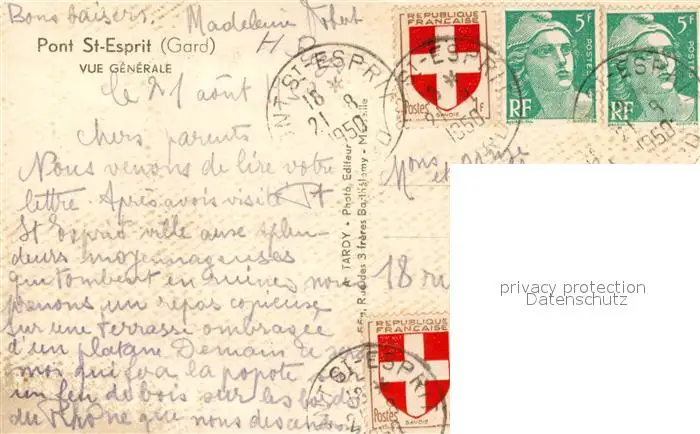 Bons baisers Madeleine
Pont St-Esprit (Gard)
VUE GÉNÉRALE
le 21 août
chers parents
Nous venons de lire votre
lettre. Après avoir visité Pt
St Esprit ville aux splen-
deurs moyennageuses
qui tombent en ruines nous
prenons un repas copieux
sur une terrasse ombragée
d'un platane Demain ce
moi qui fera la popote
un feu de bois sur les bords
du Rhône que nous
A. TARDY - Photo, Editeur
Rue des 3 frères Barthélemy - Marseille
REPUBLIQUE
FRANÇAISE
Postes 1F
SAVOIE
5F
POSTES
RF
5F
POSTES
RF
PONT-ST-ESPRIT
18
21 8
1950
ST-ESPRIT
1950
ST-ESPRIT
21 8
1950
Mons
et
18 ru
REPUBLIQUE
FRANÇAISE
Postes
SAVOIE
ST-ESPRIT
privacy protection
Datenschutz